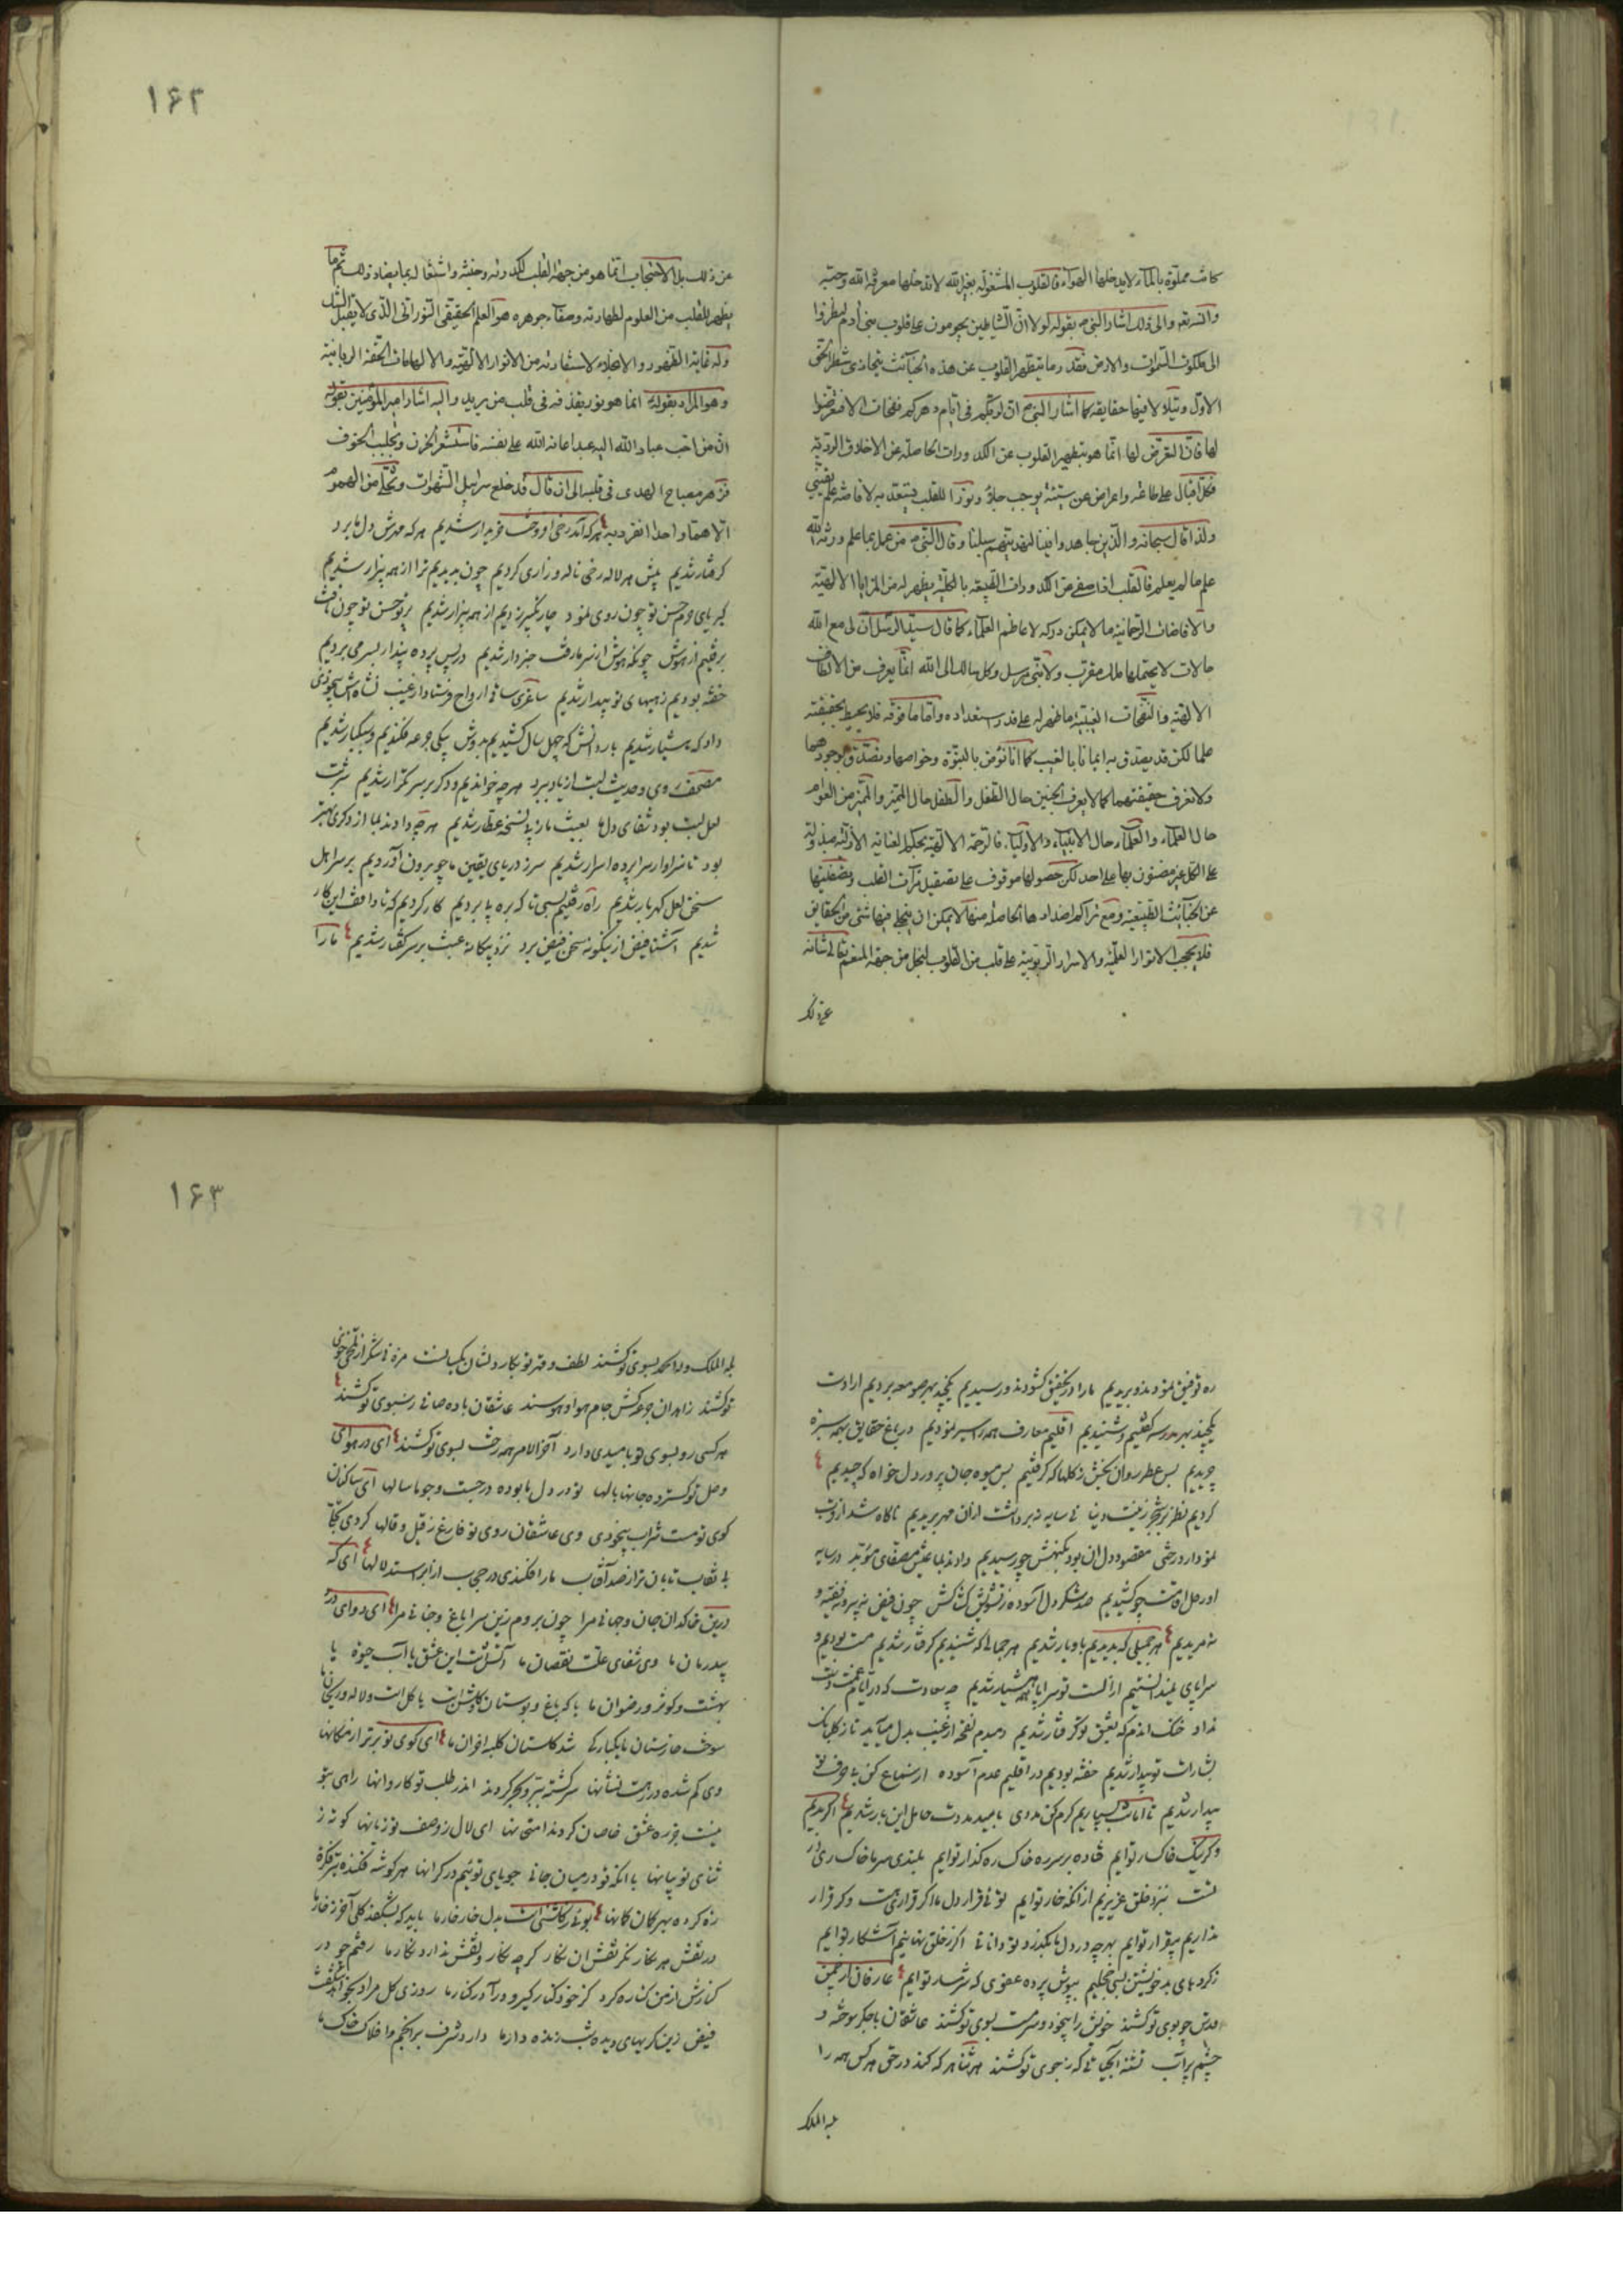 كانت مملوة بالماء لايدخلها الهواء فالقلوب المشغولة بغيرالله لاتدخلها معرفة الله وحبه
والى ذلك اشار النبي ص بقوله لولا ان الشياطين يحومون على قلوب بني آدم لنظروا
الى ملكوت السموات والارض فقد رما يتطهر القلوب عن هذه الخبائث يتحاذى شطر الحق
الاول ويتلألا فيها حقايقه كما اشار النبي ص ان لربكم في ايام دهركم نفحات الا فتعرضوا
لها فان التعرض لها انما هو بتطهير القلوب عن الكدورات الحاصلة عن الاخلاق الردية
فكل اقبال على طاعة واعراض عن سيئة يوجب جلاءً ونوراً للقلب يستعد به لافاضة علم يقيني
ولذا قال سبحانه والذين جاهدوا فينا لنهدينهم سبلنا وقال النبي ص من عمل بما علم ورثه الله
علم ما لم يعلم فالقلب اذا صفى من الكدورات الطبيعة بالكلية يظهر له من المزايا الالهية
والافاضات الرحمانية ما لايمكن دركه لاعاظم العلماء كما قال سيد الرسل ان لى مع الله
حالات لا يحتملها ملك مقرب ولا نبي مرسل وكل سالك الى الله انما يعرف من الالطاف
الالهية والنفحات الغيبية ما ظهر له على قدر استعداده واما ما فوقه فلا يحيط بحقيقته
علما لكن قد يصدق به ايمانا بالغيب كما انا نؤمن بالنبوة وخواصها ونصدق بوجودهما
ولا نعرف حقيقتهما كما لا يعرف الجنين حال الطفل والطفل حال المميز والمميز من العوام
حال العلماء والعلماء حال الانبياء والاولياء فالرحمة الالهية بحكم العناية الازلية مبذولة
على الكل غير مضنون بها على احد لكن حصولها موقوف على تصقيل مرآت القلب وتصفيتها
عن الخبائث الطبيعية ومع تراكم اضدادها الحاصلة منها لا يمكن ان يتجلى فيها شئ من الحقايق
فلا يحجب الانوار العلمية والاسرار الربوبية على قلب من القلوب لبخل من جهة المنعم تعالى شانه
عن ذلك
۱۶۲
عن ذلك بل الاحتجاب انما هو من جهة القلب لكدورته وخبثه واشتغاله بما يضاد ذلك ثم ما
يظهر للقلب من العلوم لطهارته وصفاء جوهره هو العلم الحقيقي النوراني الذي لا يقبل الشك
وله غاية الظهور والانجلاء لاستفادته من الانوار الالهية والالهامات الحقة الربانية
وهو المراد بقوله ع انما هو نور يقذفه في قلب من يريد واليه اشار امير المؤمنين بقوله
ان من احب عباد الله اليه عبدا اعانه الله على نفسه فاستشعر الحزن وتجلبب الخوف
فزهر مصباح الهدى في قلبه الى ان قال قد خلع سرابيل الشهوات وتخلى من الهموم
الا هما واحدا انفرد به هر که آمد رخی افروخت خریدار شدیم هر که مهرش دل ما برد
گرفتار شدیم پیش هر لاله رخی ناله و زاری کردیم چون بدیدیم ترا از همه بیزار شدیم
کبریای حرم حسن تو چون روی نمود چار تکبیر زدیم از همه بیزار شدیم پرتو حسن تو چون تافت
برفتیم از هوش چونکه هوش از سر ما رفت خبردار شدیم در پس پرده پندار بسر می بردیم
خفته بودیم ز هیهای تو بیدار شدیم ساغری ساقی ارواح فرستاد از غیب نشاه اش بیخودی
داد که هشیار شدیم بار دانش که چهل سال کشیدیم بدوش بیکی جرعه فکندیم و سبکبار شدیم
مصحف روی و حدیث لبت از یاد ببرد هر چه خواندیم و دگر بر سر تکرار شدیم شربت
لعل لبت بود شفای دل ما بعبث ما ز پی نسخه عطار شدیم هر چه دادند بما از دگری بهتر
بود تا سزاوار سراپرده اسرار شدیم سر ز دریای یقین ما چو برون آوردیم بر سر اهل
سخن لعل گهربار شدیم راه رفتیم بسی تا که بره پا بردیم کار کردیم که تا واقف این کار
شدیم آشنا فیض از اینگونه سخن فیض برد نزد بیگانه عبث بر سر گفتار شدیم ما را
ره توفیق نمودند و بریدیم ما را در تحقیق گشودند و رسیدیم یکچند بهر صومعه بردیم ارادت
یکچند بهر مدرسه گفتیم و شنیدیم اقلیم معارف همه را سیر نمودیم در باغ حقایق بهمه سبزه
چریدیم بس عطر روان بخش ز گلها که گرفتیم بس میوه جان پرور دل خواه که چیدیم
کردیم نظر بر شجر زینت دنیا نی سایه نه بر داشت از آن مهر بریدیم ناگاه شد از دوست
نمودار درختی مقصود دل آن بود بکنهش چو رسیدیم دادند بما عیش مصفای مؤبد در سایه
او رحل اقامت چو کشیدیم صد شکر دل آسوده ز تشویش کشاکش چون فیض نه پیر و نه فقیه و
نه مریدیم هر جمیلی که بدیدیم باو یار شدیم هر جمالی که شنیدیم گرفتار شدیم مست بودیم و
سراپای نمیدانستیم از الست تو سراپا همه هشیار شدیم چه سعادت که در ایام غمت دست
نداد خنک آندم که بعشق تو گرفتار شدیم دمبدم نفخه از غیب بدل میآید تا ز گلبانک
بشارات تو بیدار شدیم خفته بودیم در اقلیم عدم آسوده از سماع کن یا حرف تو
بیدار شدیم تا امانت بسپاریم کرم کن مددی بامید مددت حامل این بار شدیم اگر بدیم
و گر نیک خاکسار توایم فتاده بر سر ره خاک رهگذار توایم بلندی سر ما خاک ره تو
تست بنزد خلق عزیزیم از آنکه خار توایم توئی قرار دل ما اگر قراری هست و گر قرار
نداریم بیقرار توایم بهر چه در دل ما بگذرد تو دانائی اگر ز خلق نهانیم آشکار توایم
ز کردهای بد خویشتن بسی خجلیم بپوش پرده عفوی که شرمسار توایم عارفان از چمن
قدس چو بوی تو کشند خویش را بیخود و سرمست بسوی تو کشند عاشقان با جگر سوخته و
چشم پرآب تشنه آبی که ز جوی تو کشند هر ثنا هر که کند در حق هر کس همه را
له الملک
۱۶۳
له الملک وله الحمد بسوی تو کشند لطف و قهر تو بکار دلشان یکسانست مزه نی شکر از تلخی خوی
تو کشند زاهدان جرعه کش جام هوا و هوسند عاشقان باده صافی ز سبوی تو کشند
هر کسی رو بسوی تو بامیدی دارد آخر الامر همه رخت بسوی تو کشند ای در هوای
وصل تو گسترده جانها بالها تو در دل ما بوده در جست و جو ما سالها ای ساکنان
کوی تو مست شراب بیخودی وی عاشقان روی تو فارغ ز قیل و قالها کردی تجلی
بی نقاب تابان تر از صد آفتاب ما را فکندی در حجب از ابر استدلالها ای که
درین خاکدان جان و جهانی مرا چون بروم زین سرا باغ و جنانی مرا ای دوای درد
بیدرمان ما وی شفای علت نقصان ما آتش است این عشق یا آب حیوة یا
بهشت و کوثر و رضوان ما یا که باغ و بوستان و گلشن است یا گل است و لاله و ریحان ما
سوخت خارستان ما یکبارگی شد گلستان کلبه احزان ما ای کوی تو برتر از مکانها
وی گم شده در رهت نشانها سرگشته ببر و بحر گردند اندر طلب تو کاروانها راهی بتو
نیست جز ره عشق خاصان کردند امتحانها ای لال ز وصف تو زبانها کوته ز
ثنای تو بیانها با آنکه تو در میان جانی جویای توئیم در کرانها هر گوشه فکنده تیر فکرت
زه کرده بهر کمان گمانها بوئی ز گلشنی است بدل خار خار ما باید که بشکفد گلی آخر ز خار ما
در نقش هر نگار نگر نقش آن نگار گر چه نگار و نقش ندارد نگار ما رفتم چو در
کنارش از من کناره کرد گر خود کنار گیرد در آرد کنار ما روزی گل مراد بخواهد شکفت
فیض زین گریهای دیده شب زنده دار ما دارد شرف بر انجم و افلاک خاک ما